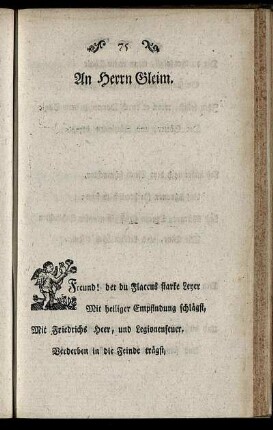 75
An Herrn Gleim.
Freund! der du Flaccus starke Leyer
Mit heiliger Empfindung schlägst,
Mit Friedrichs Heer, und Legionenfeuer,
Verderben in die Feinde trägst,